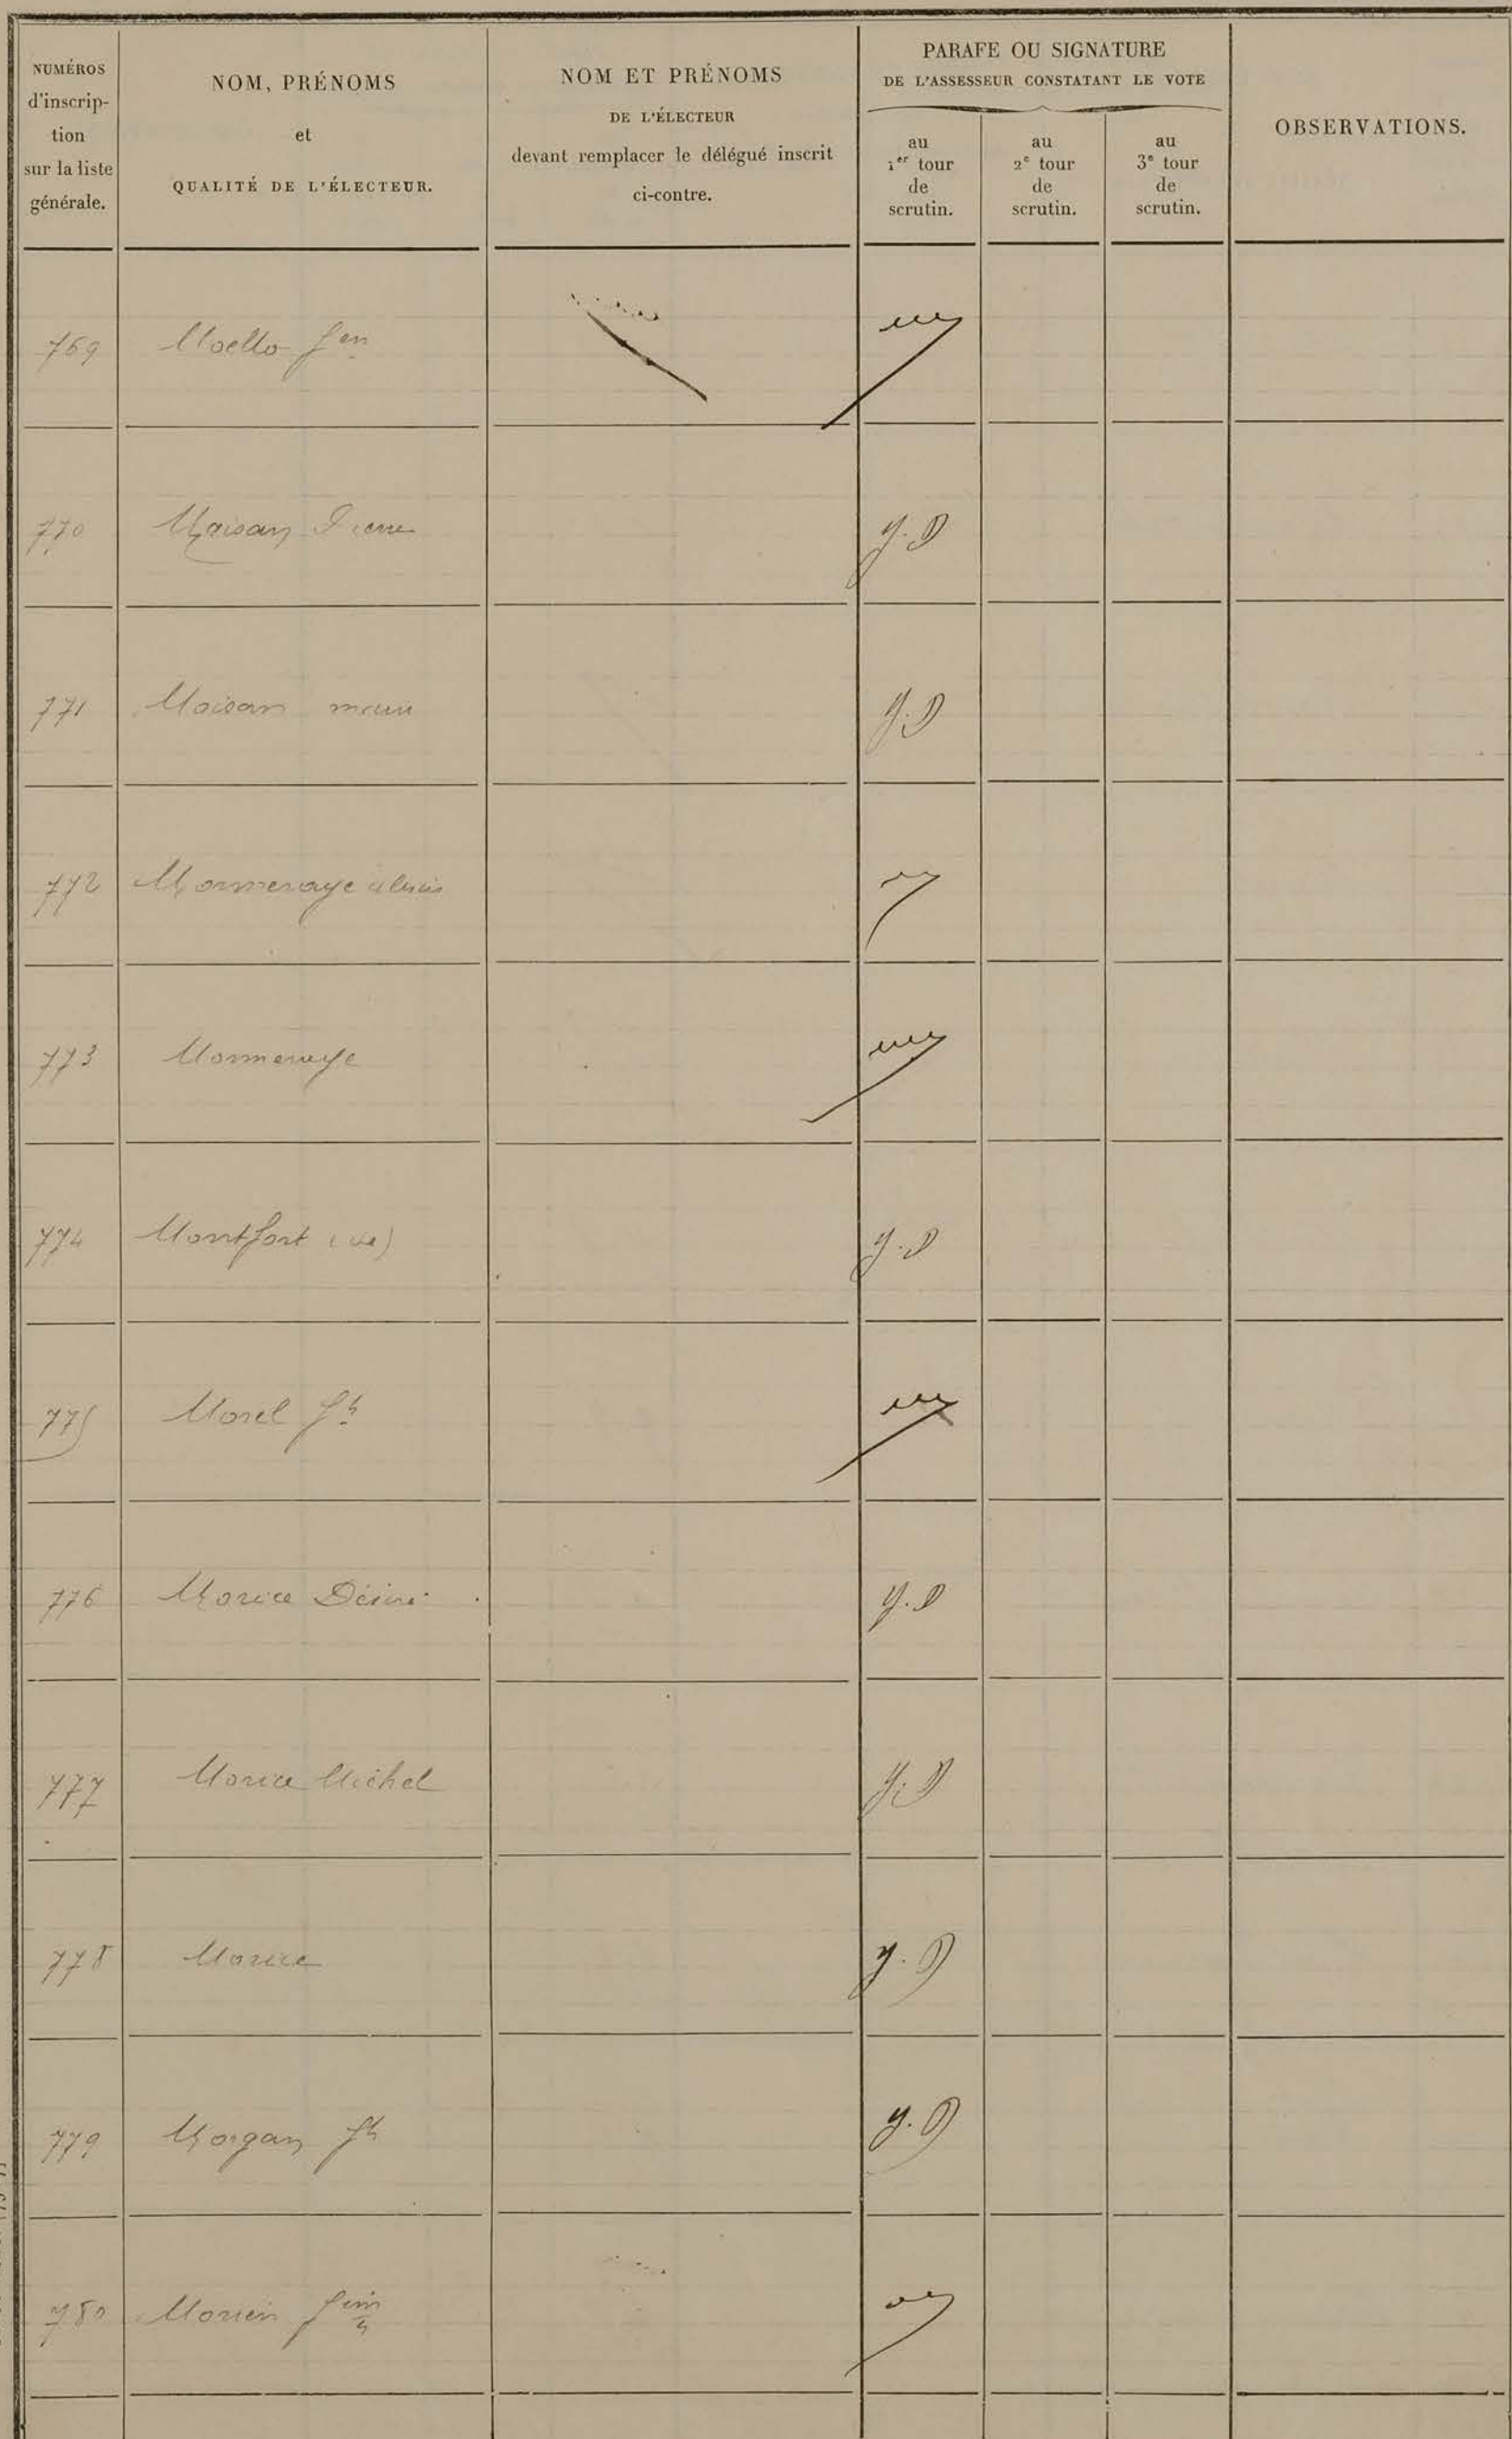 NUMÉROS
d'inscrip-
tion
sur la liste
générale.
NOM, PRÉNOMS
et
QUALITÉ DE L'ÉLECTEUR.
NOM ET PRÉNOMS
DE L'ÉLECTEUR
devant remplacer le délégué inscrit
ci-contre.
PARAFE OU SIGNATURE
DE L'ASSESSEUR CONSTATANT LE VOTE
au
1er tour
de
scrutin.
au
2e tour
de
scrutin.
au
3e tour
de
scrutin.
OBSERVATIONS.
769 Moello Jean
770 Maisan Pierre y.D
771 Moisan y.D
772 Monneraye
773 Monneraye
774 Montfort (ve) y.D
775 Morel Jh
776 Morice Désiré y.D
777 Morice Michel y.D
778 Morice y.D
779 Morgan Jh y.D
780 Morien